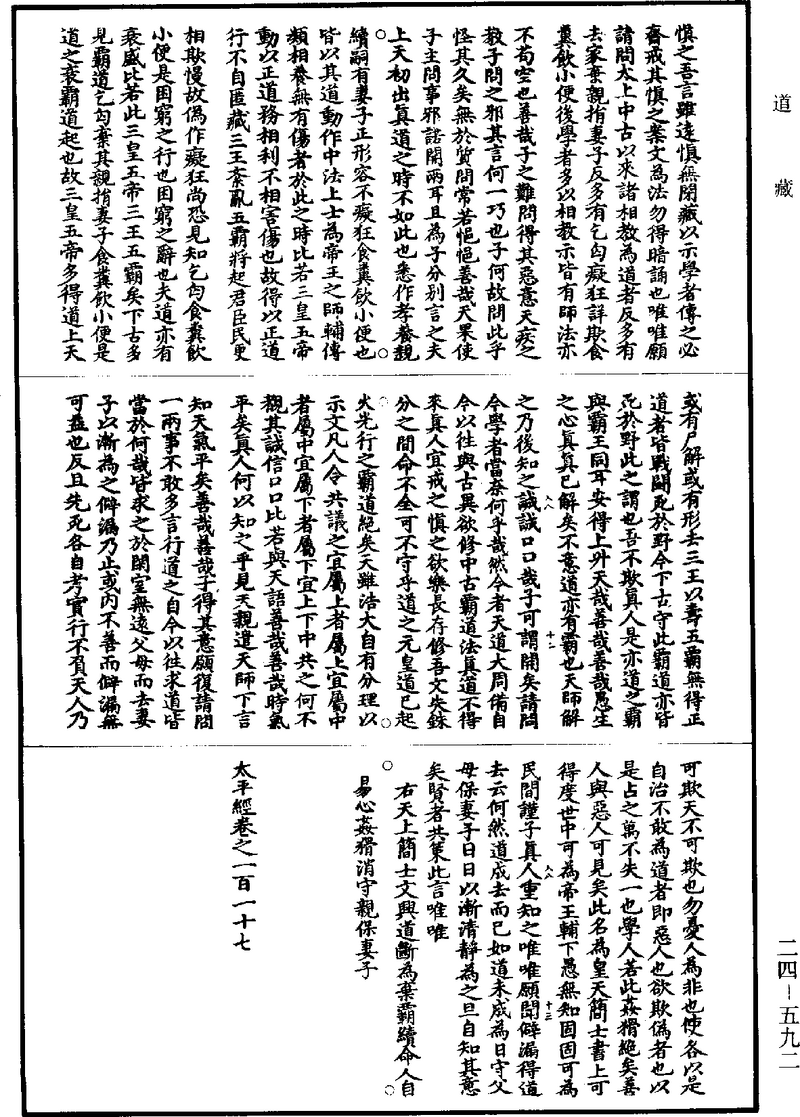 道藏
慎之吾言雖遠慎無閉藏以示學者傳之必
齋戒其慎之案文為法勿得暗誦也唯唯願
請問太上中古以來諸相教為道者反多有
去家棄親捐妻子反多有乞匃癡狂詳欺食
糞飲小便後學者多以相教示皆有師法亦
不苟空也善哉子之難問得其惡意天疾之
教子問之邪其言何一巧也子何故問此乎
怪其久矣無於質問常若悒悒善哉天果使
子主問事邪諾開兩耳且為子分別言之夫
上天初出真道之時不如此也悉作孝養親
續嗣有妻子正形容不癡狂食糞飲小便也
皆以其道動作中法上士為帝王之師輔傳
類相養無有傷者於此之時比若三皇五帝
動以正道務相利不相害傷也故得以正道
行不自匿藏三王紊亂五霸將起君臣民更
相欺慢故偽作癡狂尚恐見知乞匃食糞飲
小便是困窮之行也困窮之辭也夫道亦有
衰盛比若此三皇五帝三王五霸矣下古多
見霸道乞匃棄其親捐妻子食糞飲小便是
道之衰霸道起也故三皇五帝多得道上天
或有尸解或有形去三王以壽五霸無得正
道者皆戰鬭死於野今下古守此霸道亦皆
死於野此之謂也吾不欺真人是亦道之霸
與霸王同耳安得上升天哉善哉善哉愚生
之心真真已解矣不意道亦有霸也天師解
之乃後知之誠誠口口哉子可謂開矣請問
今學者當奈何乎哉然今者天道大周備自
今以往與古異欲修中古霸道法真道不得
來真人宜戒之慎之欲樂長存修吾文失銖
分之間命不全可不守乎道之元皇道已起
火光行之霸道絕矣天雖浩大自有分理以
示文凡人令共議之宜屬上者屬上宜屬中
者屬中宜屬下者屬下宜上下中共之何不
觀其誠信口口比若與天語善哉善哉時氣
平矣真人何以知之乎見天親遣天師下言
知天氣平矣善哉善哉子得其意願復請問
一兩事不敢多言行道之自今以往求道皆
當於何哉皆求之於閉室無遠父母而去妻
子以漸為之僻漏乃止或內不善而僻漏無
可益也反且先死各自考實行不負天人乃
可欺天不可欺也勿憂人為非也使各以是
自治不敢為道者即惡人也欲欺偽者也以
是占之萬不失一也學人若此姦猾絕矣善
人與惡人可見矣此名為皇天簡士書上可
得度世中可為帝王輔下愚無知固固可為
民間謹子真人重知之唯唯願聞僻漏得道
去云何然道成去而已如道未成為日守父
母保妻子日日以漸清靜為之旦自知其意
矣賢者共策此言唯唯
右天上簡士文興道斷為棄霸續命人自
易心姦猾消守親保妻子
太平經卷之一百一十七
二四—五九二